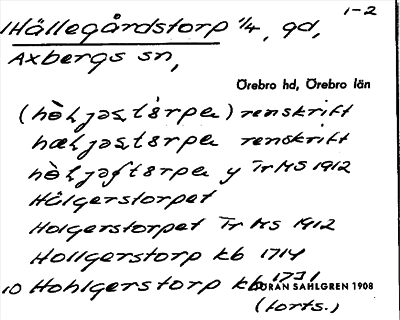 1-2
1 Hällegårdstorp 1/4, gd,
Axbergs sn,
Örebro hd, Örebro län
renskrift
renskrift
y Tr MS 1912
Hölgerstorpet
Holgerstorpet Tr Ms 1912
Hollgerstorp kb 1714
10 Hohlgerstorp kb 1731
GÖRAN SAHLGREN 1908
(forts.)